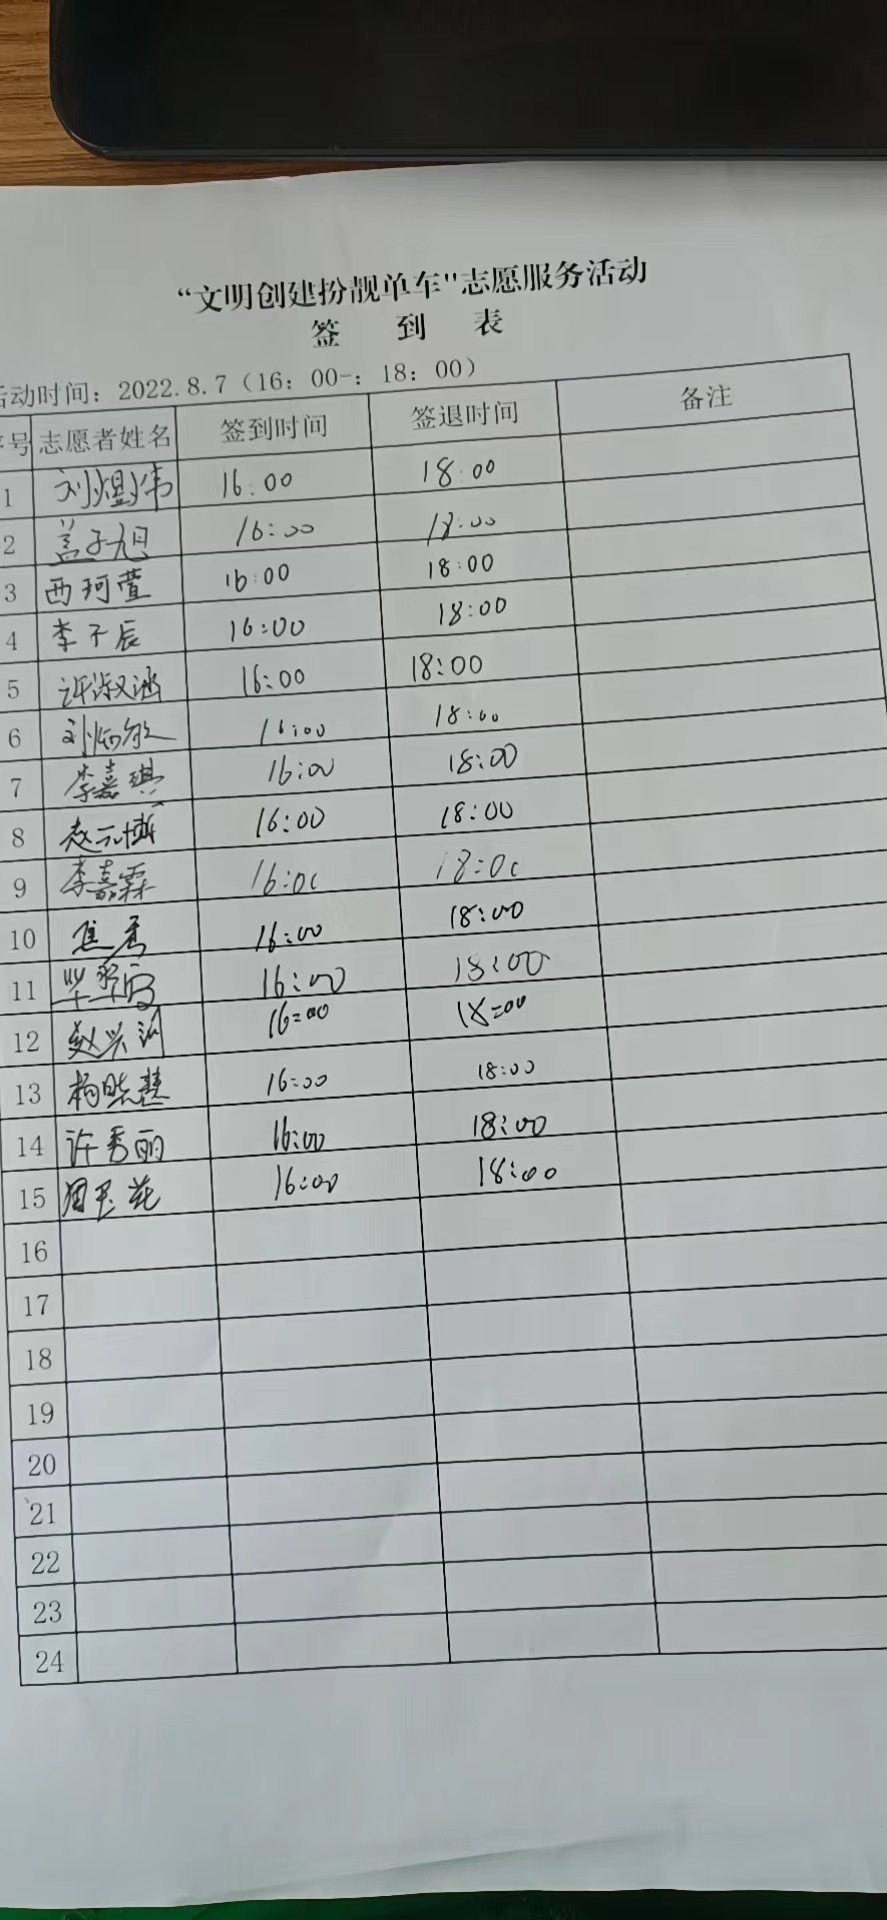 “文明创建扮靓单车"志愿服务活动
签 到 表
活动时间：2022.8.7（16：00-：18：00）
序号 志愿者姓名 签到时间 签退时间 备注
1 刘煜伟 16:00 18:00
2 盖子旭 16:00 18:00
3 西珂萱 16:00 18:00
4 李不辰 16:00 18:00
5 许淑涵 16:00 18:00
6 刘炳敏 16:00 18:00
7 李嘉琪 16:00 18:00
8 赵元博 16:00 18:00
9 李嘉霖 16:00 18:00
10 焦秀 16:00 18:00
11 16:00 18:00
12 赵兴 16=00 18=00
13 杨晓慧 16:00 18:00
14 许秀丽 16:00 18:00
15 16:00 18:00
16
17
18
19
20
21
22
23
24